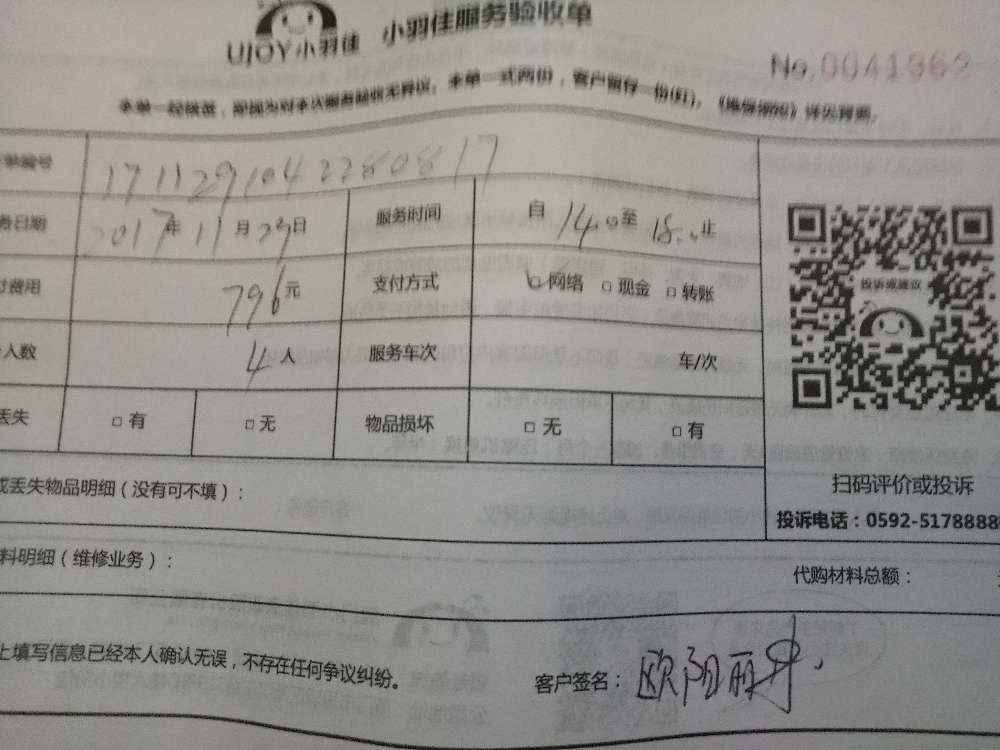 UJOY小羽佳 小羽佳服务验收单
No.0041962
本单一经核签，即视为对本次服务验收无异议。本单一式两份，客户留存一份(红)，《维修细则》详见背面。
单编号 1711291042280817
务日期 2017年11月29日 服务时间 自14:00至18:00止
付费用 796元 支付方式 □网络 □现金 □转账
人数 4人 服务车次 车/次
丢失 □有 □无 物品损坏 □无 □有
投诉或建议
扫码评价或投诉
投诉电话：0592-5178888
或丢失物品明细（没有可不填）：
料明细（维修业务）：
代购材料总额：
上填写信息已经本人确认无误，不存在任何争议纠纷。
客户签名：欧阳丽